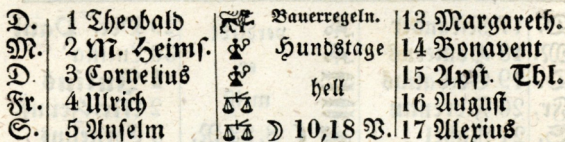 D. 1 Theobald Bauerregeln. 13 Margareth.
M. 2 M. Heimſ. Hundstage 14 Bonavent
D. 3 Cornelius hell 15 Apſt. Thl.
Fr. 4 Ulrich 16 Auguſt
S. 5 Anſelm ☽ 10,18 V. 17 Alexius